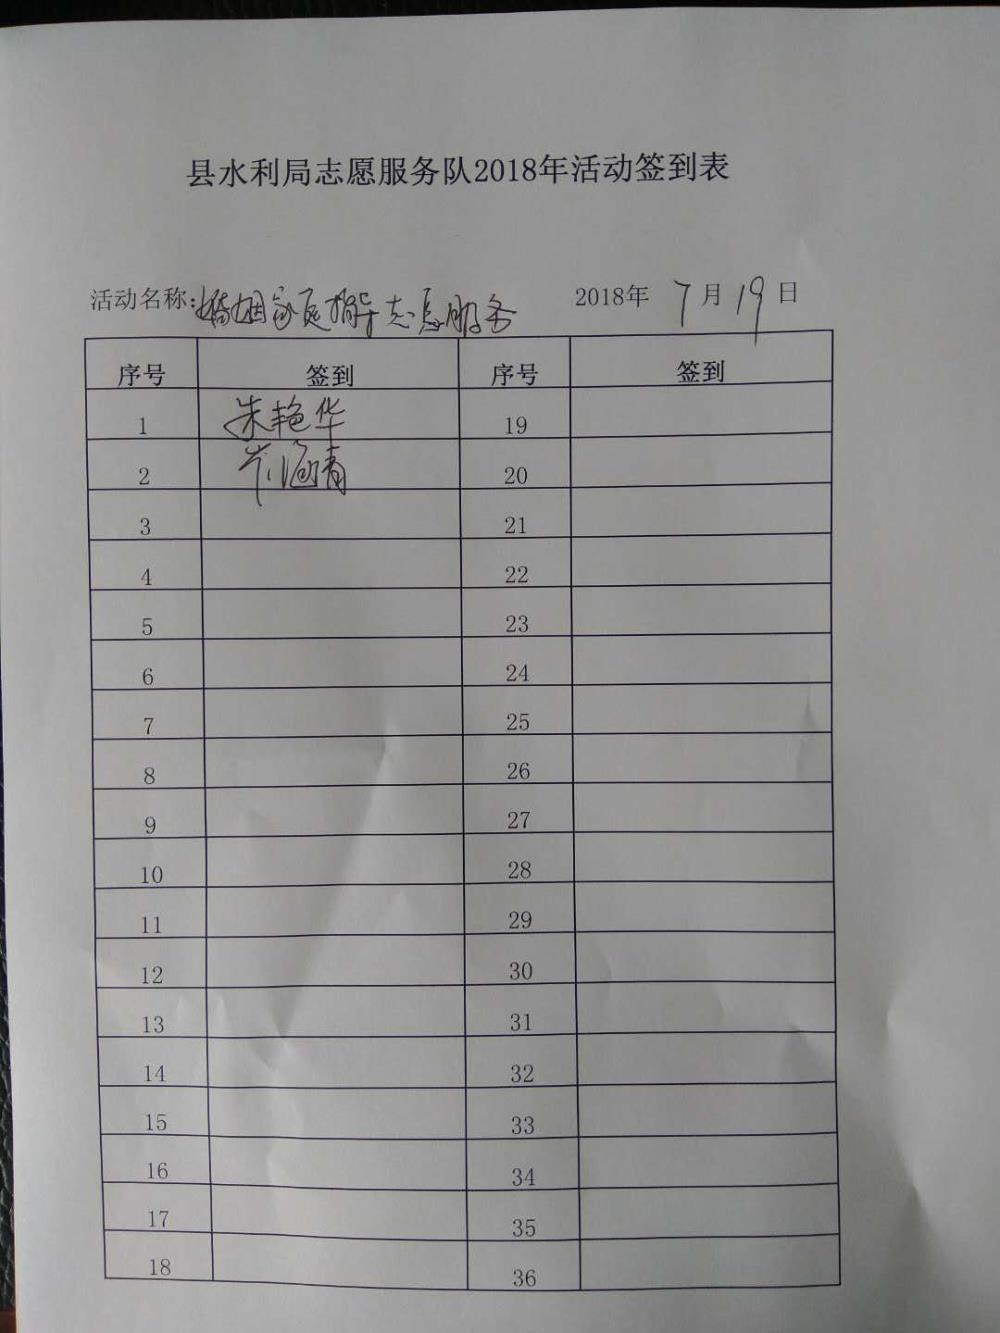 县水利局志愿服务队2018年活动签到表
活动名称:婚姻家庭指导志愿服务 2018年 7月19日
序号 签到 序号 签到
1 朱艳华 19
2 岑涵青 20
3 21
4 22
5 23
6 24
7 25
8 26
9 27
10 28
11 29
12 30
13 31
14 32
15 33
16 34
17 35
18 36